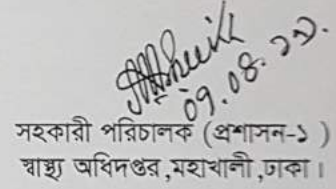 09.08.২০.
সহকারী পরিচালক (প্রশাসন-১)
স্বাস্থ্য অধিদপ্তর,মহাখালী,ঢাকা।